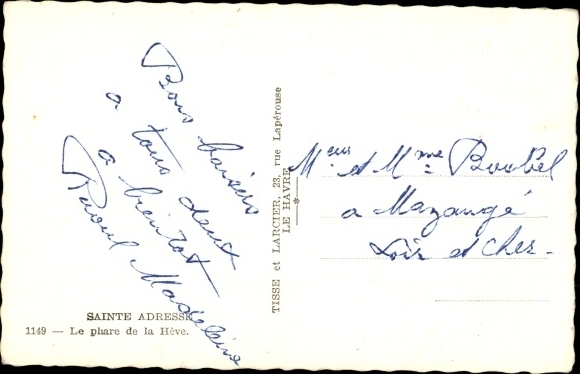 Bons baisers
a tous deux
a bientot
Raoul Madeleine
SAINTE ADRESSE
1149 — Le phare de la Hève.
TISSE et LARCIER, 23, rue Lapérouse
LE HAVRE
Meur et Mme Boubel
a Mazangé
Loir et Cher -